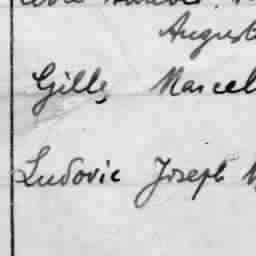 August
Gilles Marcel
Ludovic Joseph